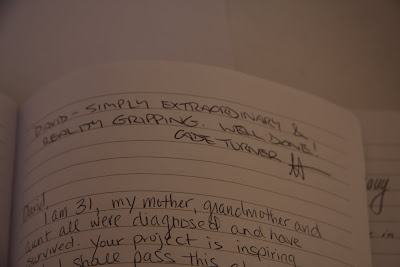 DAVID - SIMPLY EXTRAORDINARY &
REALITY GRIPPING. WELL DONE!
TURNER
David,
I am 31, my mother, grandmother and
aunt all were diagnosed and have
survived. Your project is inspiring
I shall pass this